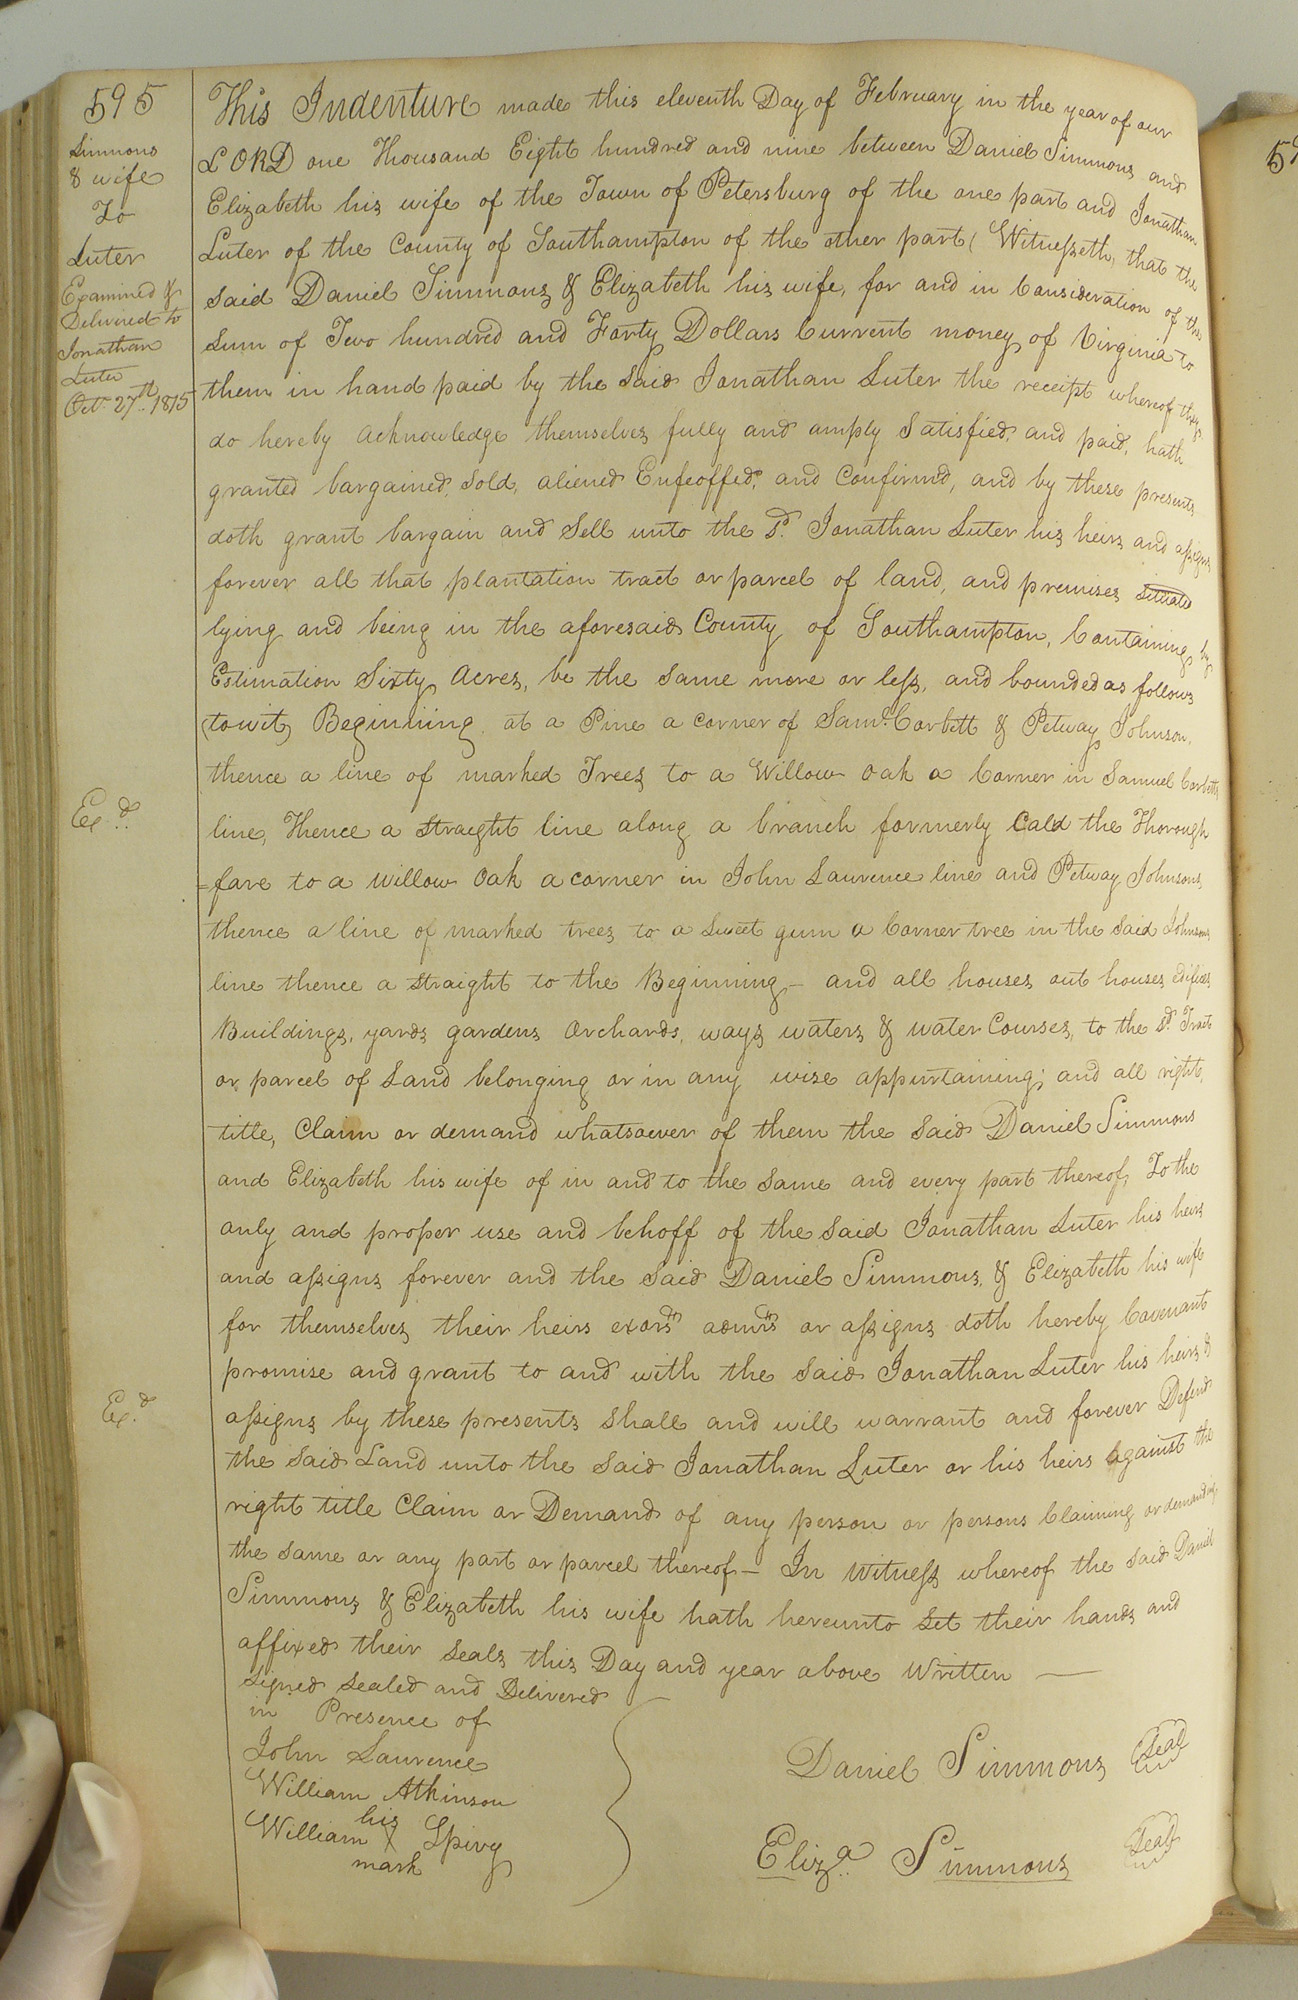 595
Simmons
& wife
To
Luter
Examined &
Delivered to
Jonathan
Luter
Oct. 27th. 1815
Exd.
Exd.
This Indenture made this eleventh Day of February in the year of our
LORD one Thousand Eight hundred and nine between Daniel Simmons and
Elizabeth his wife of the Town of Petersburg of the one part and Jonathan
Luter of the County of Southampton of the other part (Witnesseth, that the
said Daniel Simmons & Elizabeth his wife, for and in Consideration of the
Sum of Two hundred and Forty Dollars Current money of Virginia to
them in hand paid by the said Jonathan Luter the receipt whereof they
do hereby acknowledge themselves fully and amply Satisfied, and paid, hath
granted bargained, sold, aliened Enfeoffed, and Confirmd, and by these presents
doth grant bargain and Sell unto the Sd. Jonathan Luter his heirs and assigns
forever all that plantation tract or parcel of land, and premises situate
lying and being in the aforesaid County of Southampton, Containing by
Estimation Sixty Acres, be the same more or less, and bounded as follows
(towit) Beginning at a Pine a corner of Saml. Corbett & Petway Johnson,
thence a line of marked Trees to a Willow Oak a Corner in Samuel Corbetts
line, Thence a Straight line along a branch formerly Cald the Thorough
=fare to a Willow Oak a corner in John Laurence line and Petway Johnsons
thence a line of marked trees to a Sweet gum a Corner tree in the said Johnsons
line thence a Straight to the Beginning - and all houses out houses edifices
Buildings, yards gardens Orchards, ways waters & water Courses, to the Sd. Tract
or parcel of Land belonging or in any wise appurtaining; and all right,
title, Claim or demand whatsoever of them the said Daniel Simmons
and Elizabeth his wife of in and to the same and every part thereof, To the
only and proper use and behoff of the said Jonathan Luter his heirs
and assigns forever and the said Daniel Simmons, & Elizabeth his wife
for themselves their heirs exors. admrs. or assigns doth hereby Covenant
promise and grant to and with the said Jonathan Luter his heirs &
assigns by these presents shall and will warrant and forever Defend
the said Land unto the said Jonathan Luter or his heirs against the
right title Claim or Demand of any person or persons Claiming or demanding
the same or any part or parcel thereof - In Witness whereof the said Daniel
Simmons & Elizabeth his wife hath hereunto Set their hands and
affixed their seals this Day and year above Written
Signed Sealed and Delivered
in Presence of
John Laurence
William Atkinson
William his X mark Spivy
Daniel Simmons Seal
Eliza. Simmons Seal